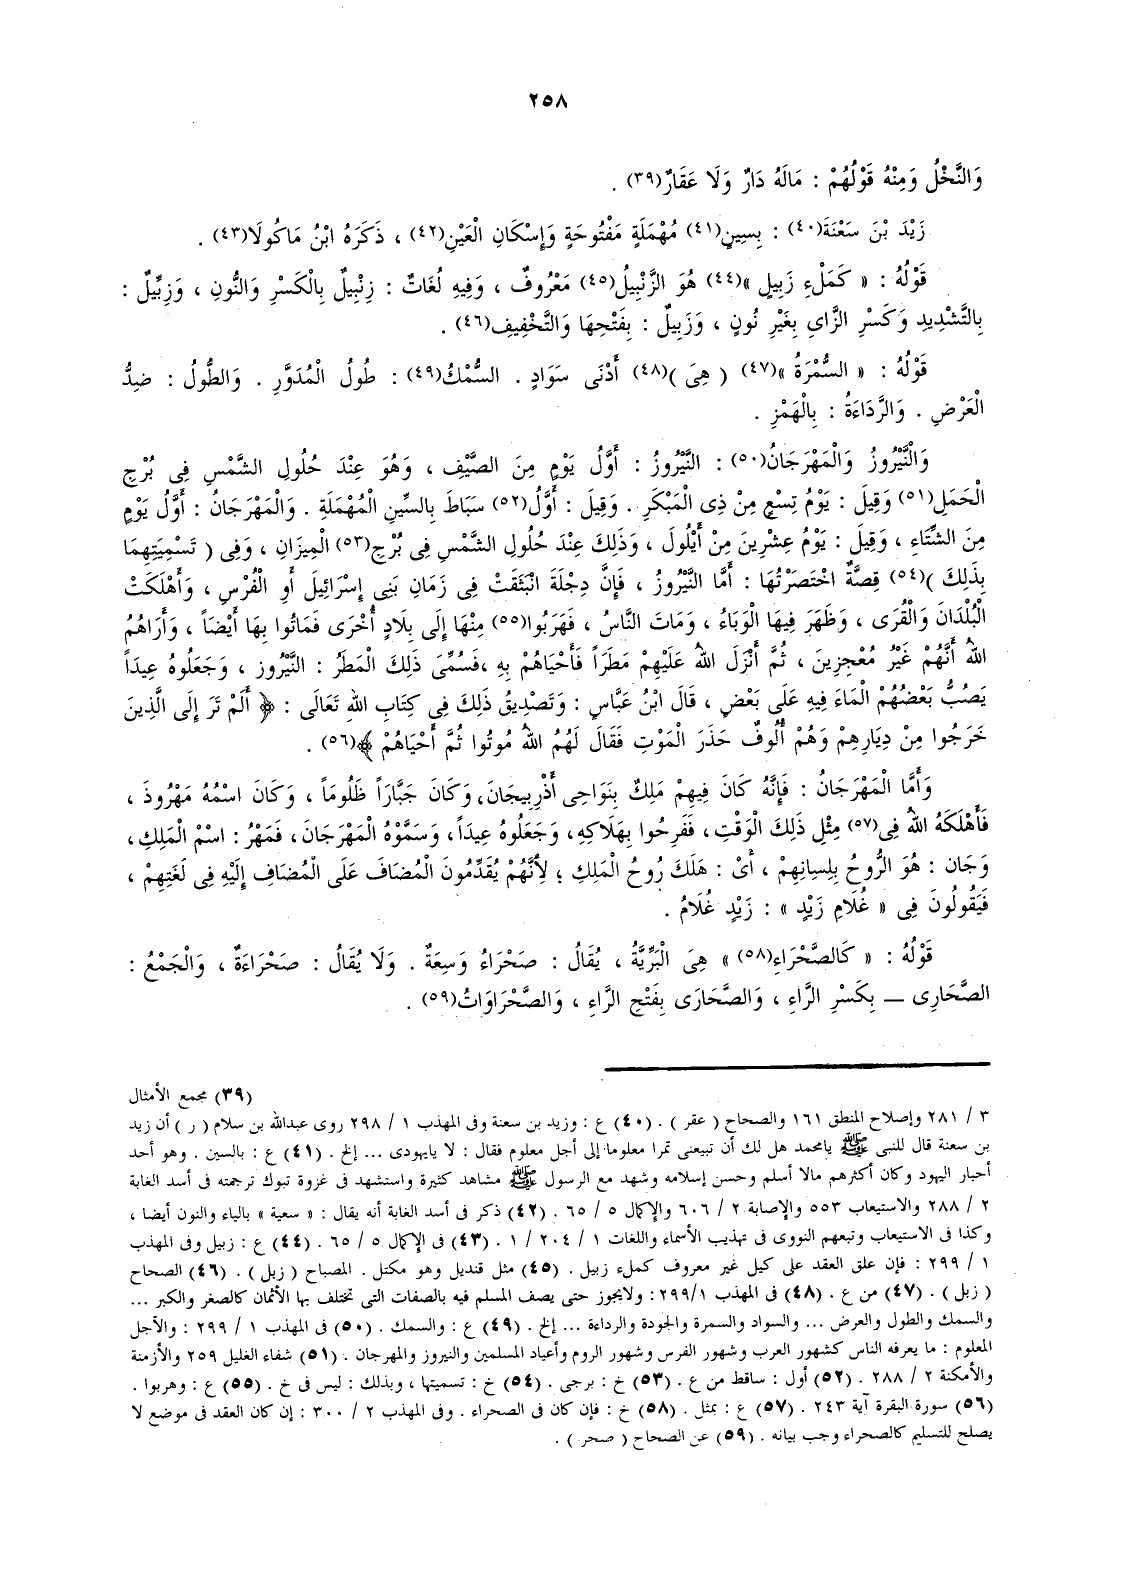 ٢٥٨
وَالنَّخْلُ وَمِنْهُ قَوْلُهُمْ : مَالَهُ دَارٌ وَلَا عَقَارٌ(٣٩) .
زَيْدَ بْنَ سَعْنَةَ(٤٠) : بِسِينٍ(٤١) مُهْمَلَةٍ مَفْتُوحَةٍ وَإِسْكَانِ الْعَيْنِ(٤٢) ، ذَكَرَهُ ابْنُ مَاكُولَا(٤٣) .
قَوْلُهُ : « كَمَلْءِ زَبِيلٍ »(٤٤) هُوَ الزَّنْبِيلُ(٤٥) مَعْرُوفٌ ، وَفِيهِ لُغَاتٌ : زِنْبِيلٌ بِالْكَسْرِ وَالنُّونِ ، وَزِبِّيلٌ :
بِالتَّشْدِيدِ وَكَسْرِ الزَّايِ بِغَيْرِ نُونٍ ، وَزَبِيلٌ : بِفَتْحِهَا وَالتَّخْفِيفِ(٤٦) .
قَوْلُهُ : « السُّمْرَةُ »(٤٧) ( هِىَ )(٤٨) أَدْنَى سَوَادٍ . السَّمْكُ(٤٩) : طُولُ الْمُدَوَّرِ . وَالطُّولُ : ضِدُّ
الْعَرْضِ . وَالرَّدَاءَةُ : بِالْهَمْزِ .
وَالنَّيْرُوزُ وَالْمَهْرَجَانُ(٥٠) : النَّيْرُوزُ : أَوَّلُ يَوْمٍ مِنَ الصَّيْفِ ، وَهُوَ عِنْدَ حُلُولِ الشَّمْسِ فِى بُرْجِ
الْحَمَلِ(٥١) وَقِيلَ : يَوْمُ تِسْعٍ مِنْ ذِى الْمَبْكَرِ . وَقِيلَ : أَوَّلُ(٥٢) سَبَاطَ بِالسِّينِ الْمُهْمَلَةِ . وَالْمَهْرَجَانُ : أَوَّلُ يَوْمٍ
مِنَ الشِّتَاءِ ، وَقِيلَ : يَوْمُ عِشْرِينَ مِنْ أَيْلُولَ ، وَذَلِكَ عِنْدَ حُلُولِ الشَّمْسِ فِى بُرْجِ(٥٣) الْمِيزَانِ ، وَفِى ( تَسْمِيَتِهِمَا
بِذَلِكَ )(٥٤) قِصَّةٌ اخْتَصَرْتُهَا : أَمَّا النَّيْرُوزُ ، فَإِنَّ دِجْلَةَ انْبَثَقَتْ فِى زَمَانِ بَنِى إِسْرَائِيلَ أَوِ الْفُرْسِ ، وَأَهْلَكَتْ
الْبُلْدَانَ وَالْقُرَى ، وَظَهَرَ فِيهَا الْوَبَاءُ ، وَمَاتَ النَّاسُ ، فَهَرَبُوا(٥٥) مِنْهَا إِلَى بِلَادٍ أُخْرَى فَمَاتُوا بِهَا أَيْضاً ، وَأَرَاهُمُ
اللهُ أَنَّهُمْ غَيْرُ مُعْجِزِينَ ، ثُمَّ أَنْزَلَ اللهُ عَلَيْهِمْ مَطَراً فَأَحْيَاهُمْ بِهِ ،فَسُمِّىَ ذَلِكَ الْمَطَرُ : النَّيْرُوز ، وَجَعَلُوهُ عِيدًا
يَصُبُّ بَعْضُهُمْ الْمَاءَ فِيهِ عَلَى بَعْضٍ ، قَالَ ابْنُ عَبَّاسٍ : وَتَصْدِيقُ ذَلِكَ فِى كِتَابِ اللهِ تَعَالَى : ﴿ أَلَمْ تَرَ إِلَى الَّذِينَ
خَرَجُوا مِنْ دِيَارِهِمْ وَهُمْ أُلُوفٌ حَذَرَ الْمَوْتِ فَقَالَ لَهُمُ اللهُ مُوتُوا ثُمَّ أَحْيَاهُمْ ﴾(٥٦) .
وَأَمَّا الْمَهْرَجَانُ : فَإِنَّهُ كَانَ فِيهِمْ مَلِكٌ بِنَوَاحِى أَذْرِبِيجَانَ، وَكَانَ جَبَّارًا ظَلُوماً ، وَكَانَ اسْمُهُ مَهْرُوذَ ،
فَأَهْلَكَهُ اللهُ فِى(٥٧) مِثْلِ ذَلِكَ الْوَقْتِ، فَفَرِحُوا بِهَلَاكِهِ، وَجَعَلُوهُ عِيداً، وَسَمَّوْهُ الْمَهْرَجَانَ، فَمَهْرُ : اسْمُ الْمَلِكِ،
وَجَان : هُوَ الرُّوحُ بِلِسِانِهِمْ ، أَىْ : هَلَكَ رُوحُ الْمَلِكِ ؛ لِأَنَّهُمْ يُقَدِّمُونَ الْمُضَافَ عَلَى الْمُضَافِ إِلَيْهِ فِى لُغَتِهِمْ ،
فَيَقُولُونَ فِى « غُلَامِ زَيْدٍ » : زَيْدٍ غُلَامُ .
قَوْلُهُ : « كَالصَّحْرَاءِ(٥٨) » هِىَ الْبَرِّيَّةُ ، يُقَالُ : صَحْرَاءُ وَسِعَةٌ . وَلَا يُقَالُ : صَحْرَاءَةٌ ، وَالْجَمْعُ :
الصَّحَارِى ــ بِكَسْرِ الرَّاءِ ، وَالصَّحَارَى بِفَتْحِ الرَّاءِ ، وَالصَّحْرَاوَاتُ(٥٩) .
(٣٩) مجمع الأمثال
٣ / ٢٨١ وإصلاح المنطق ١٦١ والصحاح ( عقر ) . (٤٠) ع : وزيد بن سعنة وفى المهذب ١ / ٢٩٨ روى عبدالله بن سلام ( ر ) أن زيد
بن سعنة قال للنبى ﷺ يامحمد هل لك أن تبيعنى تمرا معلوما إلى أجل معلوم فقال : لا يايهودى ... إلخ . (٤١) ع : بالسين . وهو أحد
أحبار اليهود وكان أكثرهم مالا أسلم وحسن إسلامه وشهد مع الرسول ﷺ مشاهد كثيرة واستشهد فى غزوة تبوك ترجمته فى أسد الغابة
٢ / ٢٨٨ والاستيعاب ٥٥٣ والإصابة ٢ / ٦٠٦ والإكمال ٥ / ٦٥ . (٤٢) ذكر فى أسد الغابة أنه يقال : « سعية » بالياء والنون أيضا ،
وكذا فى الاستيعاب وتبعهم النووى فى تهذيب الأسماء واللغات ١ / ٢٠٤ / ١ . (٤٣) فى الإكمال ٥ / ٦٥ . (٤٤) ع : زبيل وفى المهذب
١ / ٢٩٩ : فإن علق العقد على كيل غير معروف كملء زبيل . (٤٥) مثل قنديل وهو مكتل . المصباح ( زبل ) . (٤٦) الصحاح
( زبل ) . (٤٧) من ع . (٤٨) فى المهذب ٢٩٩/١ : ولايجوز حتى يصف المسلم فيه بالصفات التى تختلف بها الأثمان كالصغر والكبر ...
والسمك والطول والعرض ... والسواد والسمرة والجودة والرداءة ... إلخ . (٤٩) ع : والسمك . (٥٠) فى المهذب ١ / ٢٩٩ : والآجل
المعلوم : ما يعرفه الناس كشهور العرب وشهور الفرس وشهور الروم وأعياد المسلمين والنيروز والمهرجان . (٥١) شفاء الغليل ٢٥٩ والأزمنة
والأمكنة ٢ / ٢٨٨ . (٥٢) أول : ساقط من ع . (٥٣) خ : برجى . (٥٤) خ : تسميتها ، وبذلك : ليس فى خ . (٥٥) ع : وهربوا .
(٥٦) سورة البقرة آية ٢٤٣ . (٥٧) ع : بمثل . (٥٨) خ : فإن كان فى الصحراء . وفى المهذب ٢ / ٣٠٠ : إن كان العقد فى موضع لا
يصلح للتسليم كالصحراء وجب بيانه . (٥٩) عن الصحاح ( صحر ) .